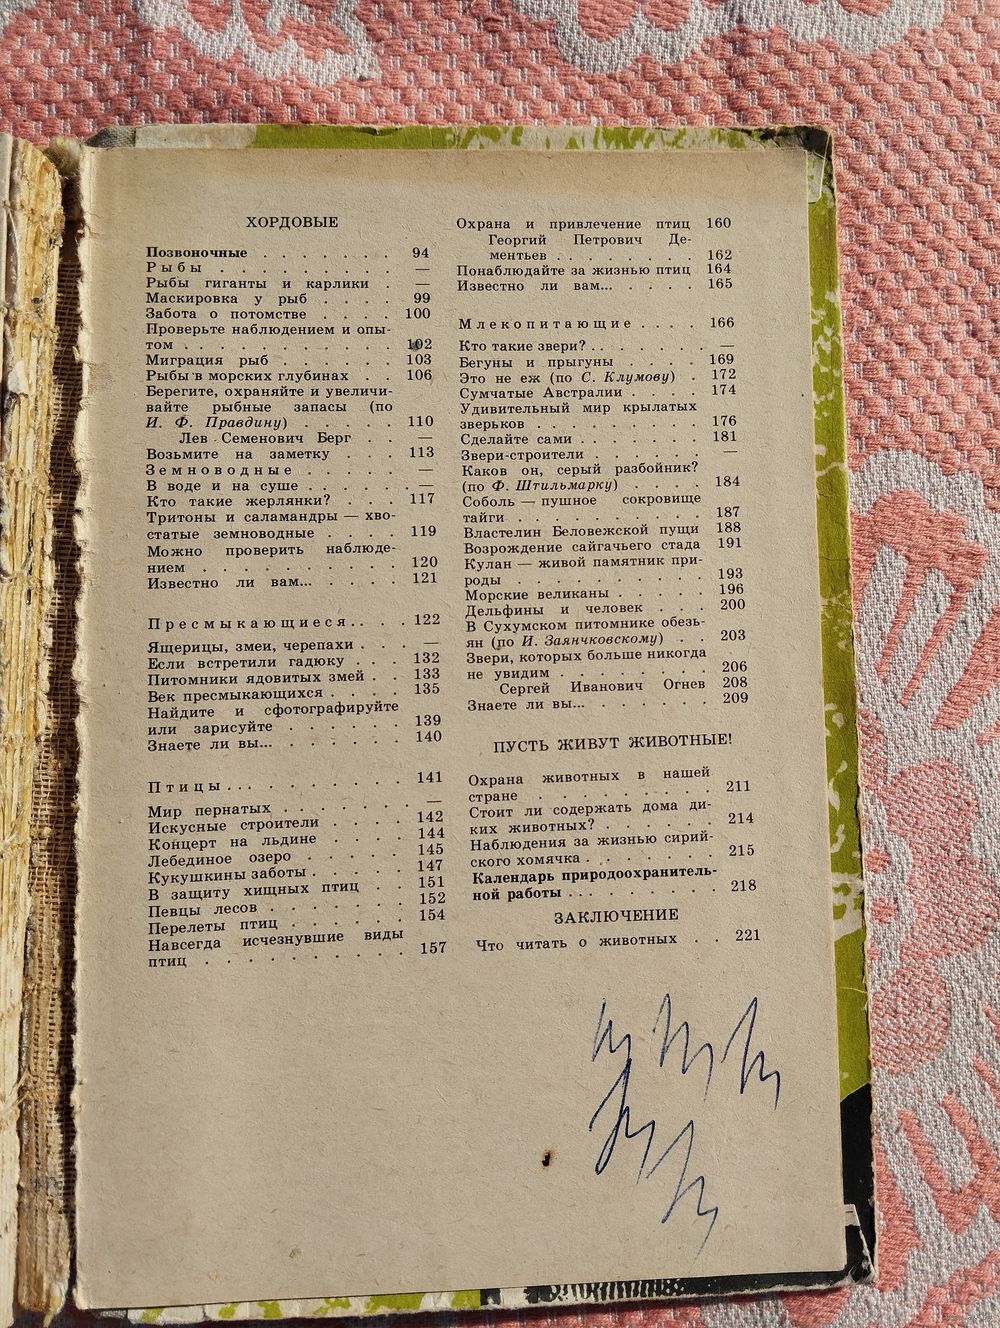 ХОРДОВЫЕ
Позвоночные . . . . . . . 94
Рыбы . . . . . . . . . —
Рыбы гиганты и карлики . —
Маскировка у рыб . . . . 99
Забота о потомстве . . . . 100
Проверьте наблюдением и опы-
том . . . . . . . . . . . 102
Миграция рыб . . . . . . 103
Рыбы в морских глубинах . . 106
Берегите, охраняйте и увеличи-
вайте рыбные запасы (по
И. Ф. Правдину) . . . . . 110
Лев Семенович Берг . . —
Возьмите на заметку . . . 113
Земноводные . . . . . —
В воде и на суше . . . . . . —
Кто такие жерлянки? . . . 117
Тритоны и саламандры — хво-
статые земноводные . . . . 119
Можно проверить наблюде-
нием . . . . . . . . . . 120
Известно ли вам... . . . . 121
Пресмыкающиеся . . . . 122
Ящерицы, змеи, черепахи . . . —
Если встретили гадюку . . . 132
Питомники ядовитых змей . . 133
Век пресмыкающихся . . . . 135
Найдите и сфотографируйте
или зарисуйте . . . . . . 139
Знаете ли вы... . . . . . . 140
Птицы . . . . . . . . . . 141
Мир пернатых . . . . . . . —
Искусные строители . . . . 142
Концерт на льдине . . . . 144
Лебединое озеро . . . . . 145
Кукушкины заботы . . . . . 147
В защиту хищных птиц . . 151
Певцы лесов . . . . . . . 152
Перелеты птиц . . . . . . 154
Навсегда исчезнувшие виды
птиц . . . . . . . . . . 157
Охрана и привлечение птиц 160
Георгий Петрович Де-
ментьев . . . . . . . . 162
Понаблюдайте за жизнью птиц 164
Известно ли вам... . . . . 165
Млекопитающие . . . . 166
Кто такие звери? . . . . . . —
Бегуны и прыгуны . . . . 169
Это не еж (по С. Клумову) . 172
Сумчатые Австралии . . . . 174
Удивительный мир крылатых
зверьков . . . . . . . . . 176
Сделайте сами . . . . . . . 181
Звери-строители . . . . . . —
Каков он, серый разбойник?
(по Ф. Штильмарку) . . . . 184
Соболь — пушное сокровище
тайги . . . . . . . . . . 187
Властелин Беловежской пущи 188
Возрождение сайгачьего стада 191
Кулан — живой памятник при-
роды . . . . . . . . . . 193
Морские великаны . . . . . 196
Дельфины и человек . . . 200
В Сухумском питомнике обезь-
ян (по И. Заянчковскому) . . 203
Звери, которых больше никогда
не увидим . . . . . . . 206
Сергей Иванович Огнев 208
Знаете ли вы... . . . . . . 209
ПУСТЬ ЖИВУТ ЖИВОТНЫЕ!
Охрана животных в нашей
стране . . . . . . . . . 211
Стоит ли содержать дома ди-
ких животных? . . . . . . 214
Наблюдения за жизнью сирий-
ского хомячка . . . . . . . 215
Календарь природоохранитель-
ной работы . . . . . . . . 218
ЗАКЛЮЧЕНИЕ
Что читать о животных . . 221